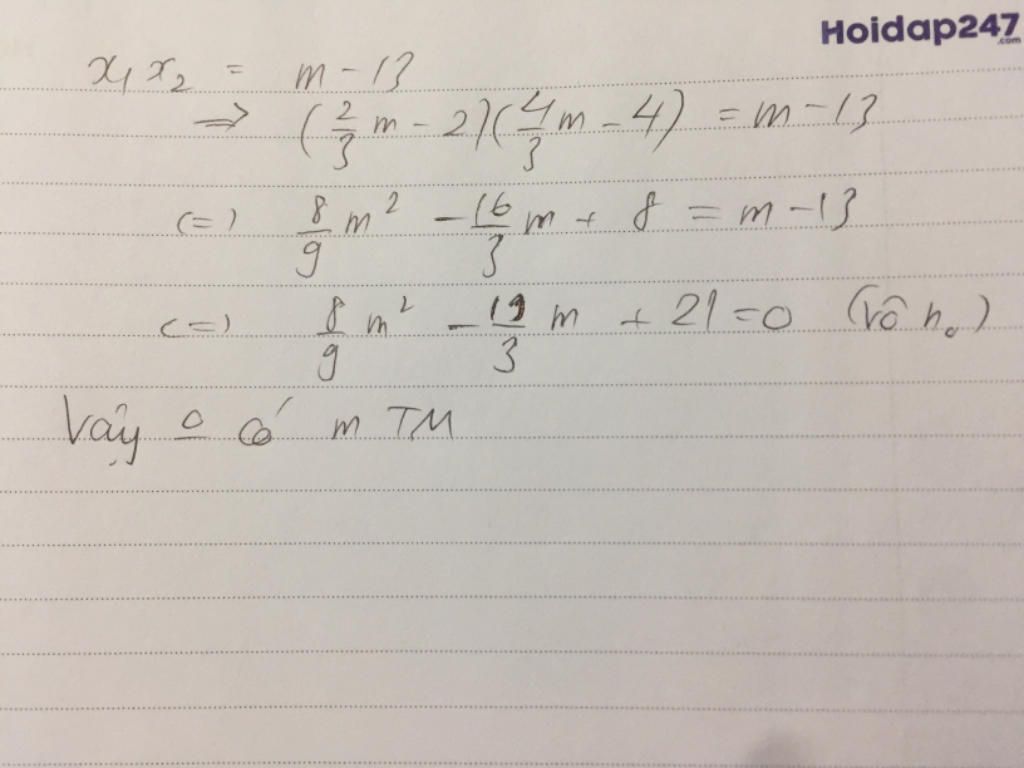 Hoidap247.com
x₁x₂ = m - 13
⇒ (2/3 m - 2)(4/3 m - 4) = m - 13
(=) 8/9 m² - 16/3 m + 8 = m - 13
(=) 8/9 m² - 19/3 m + 21 = 0 (Vô n₀)
Vậy o̲ có m TM